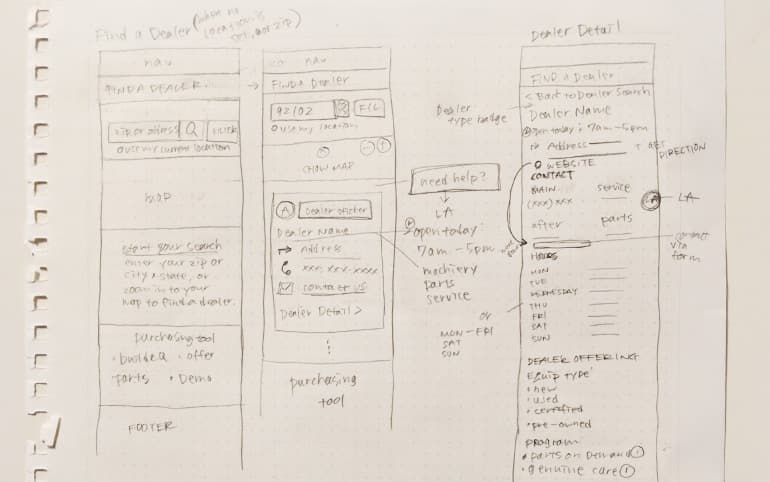 Find a Dealer (when no
location is
set, or zip)
nav
FIND A DEALER
zip or address
FILTER
use my current location
map
start your search
enter your zip or
city & state, or
zoom in to your
map to find a dealer.
purchasing tool
build & Q • offer
parts • Demo
FOOTER
nav
FIND A Dealer
92102
FIL
use my location
SHOW MAP
A
Dealer Name
Address
xxx-xxx-xxxx
contact us
Dealer Detail >
purchasing
tool
need help?
LA
open today
7am - 5pm
machiery
parts
service
or
MON - FRI
SAT
SUN
Dealer
type badge
Dealer Detail
FIND a Dealer
< Back to Dealer Search
Dealer Name
open today: 7am - 5pm
Address
+ GET
DIRECTION
WEBSITE
CONTACT
MAIN service
(xxx) xxx
LA
LA
after parts
contact
via
form
HOURS
MON
TUE
WEDNESDAY
THU
FRI
SAT
SUN
DEALER OFFERING
Equip type
• new
• used
• certified
• pre-owned
program
• parts on Demand
• genuine care